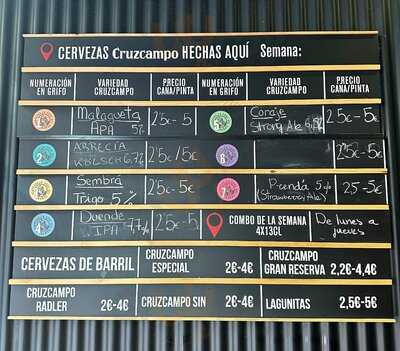 CERVEZAS Cruzcampo HECHAS AQUÍ Semana:
NUMERACIÓN EN GRIFO
VARIEDAD CRUZCAMPO
PRECIO CANA/PINTA
NUMERACIÓN EN GRIFO
VARIEDAD CRUZCAMPO
PRECIO CANA/PINTA
Malagueta
APA 5%
2'5€-5
Coraje
Strong Ale
2'5€-5€
2
ARRECIA
KÖLSCH 6,7%
2'5€/5€
6
2'5€-5€
Sembrá
Trigo 5%
2'5€-5€
7
Prenda 5%
(Strawberry Ale)
2'5-5€
4
Duende
IPA 7,7%
2'5€-5
COMBO DE LA SEMANA
4X13CL
De lunes a
jueves
CERVEZAS DE BARRIL
CRUZCAMPO ESPECIAL
2€-4€
CRUZCAMPO GRAN RESERVA
2,2€-4,4€
CRUZCAMPO RADLER
2€-4€
CRUZCAMPO SIN
2€-4€
LAGUNITAS
2,5€-5€